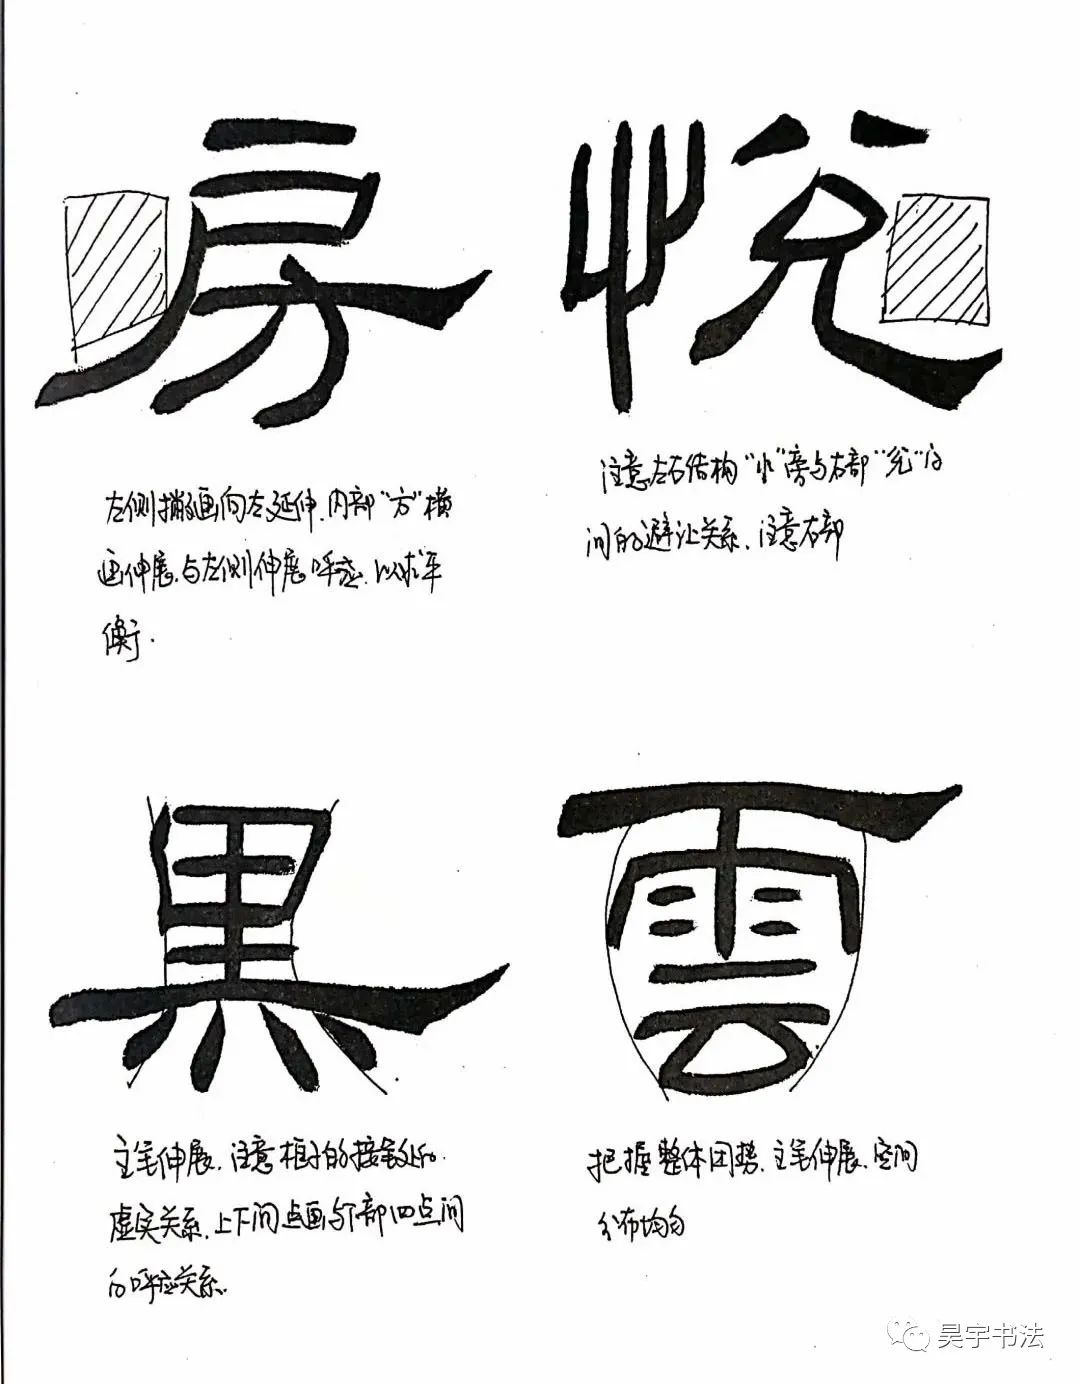 房
悦
左侧撇画向左延伸.内部“方”横
画伸展.与左侧伸展呼应.以求平
衡.
注意左右结构“忄”旁与右部“兑”的
间的避让关系.注意右部
黑
雲
主笔伸展.注意框子的接笔处的.
虚实关系.上下间点画与下部四点间
的呼应关系.
把握整体团势.主笔伸展.空间
分布均匀
昊宇书法